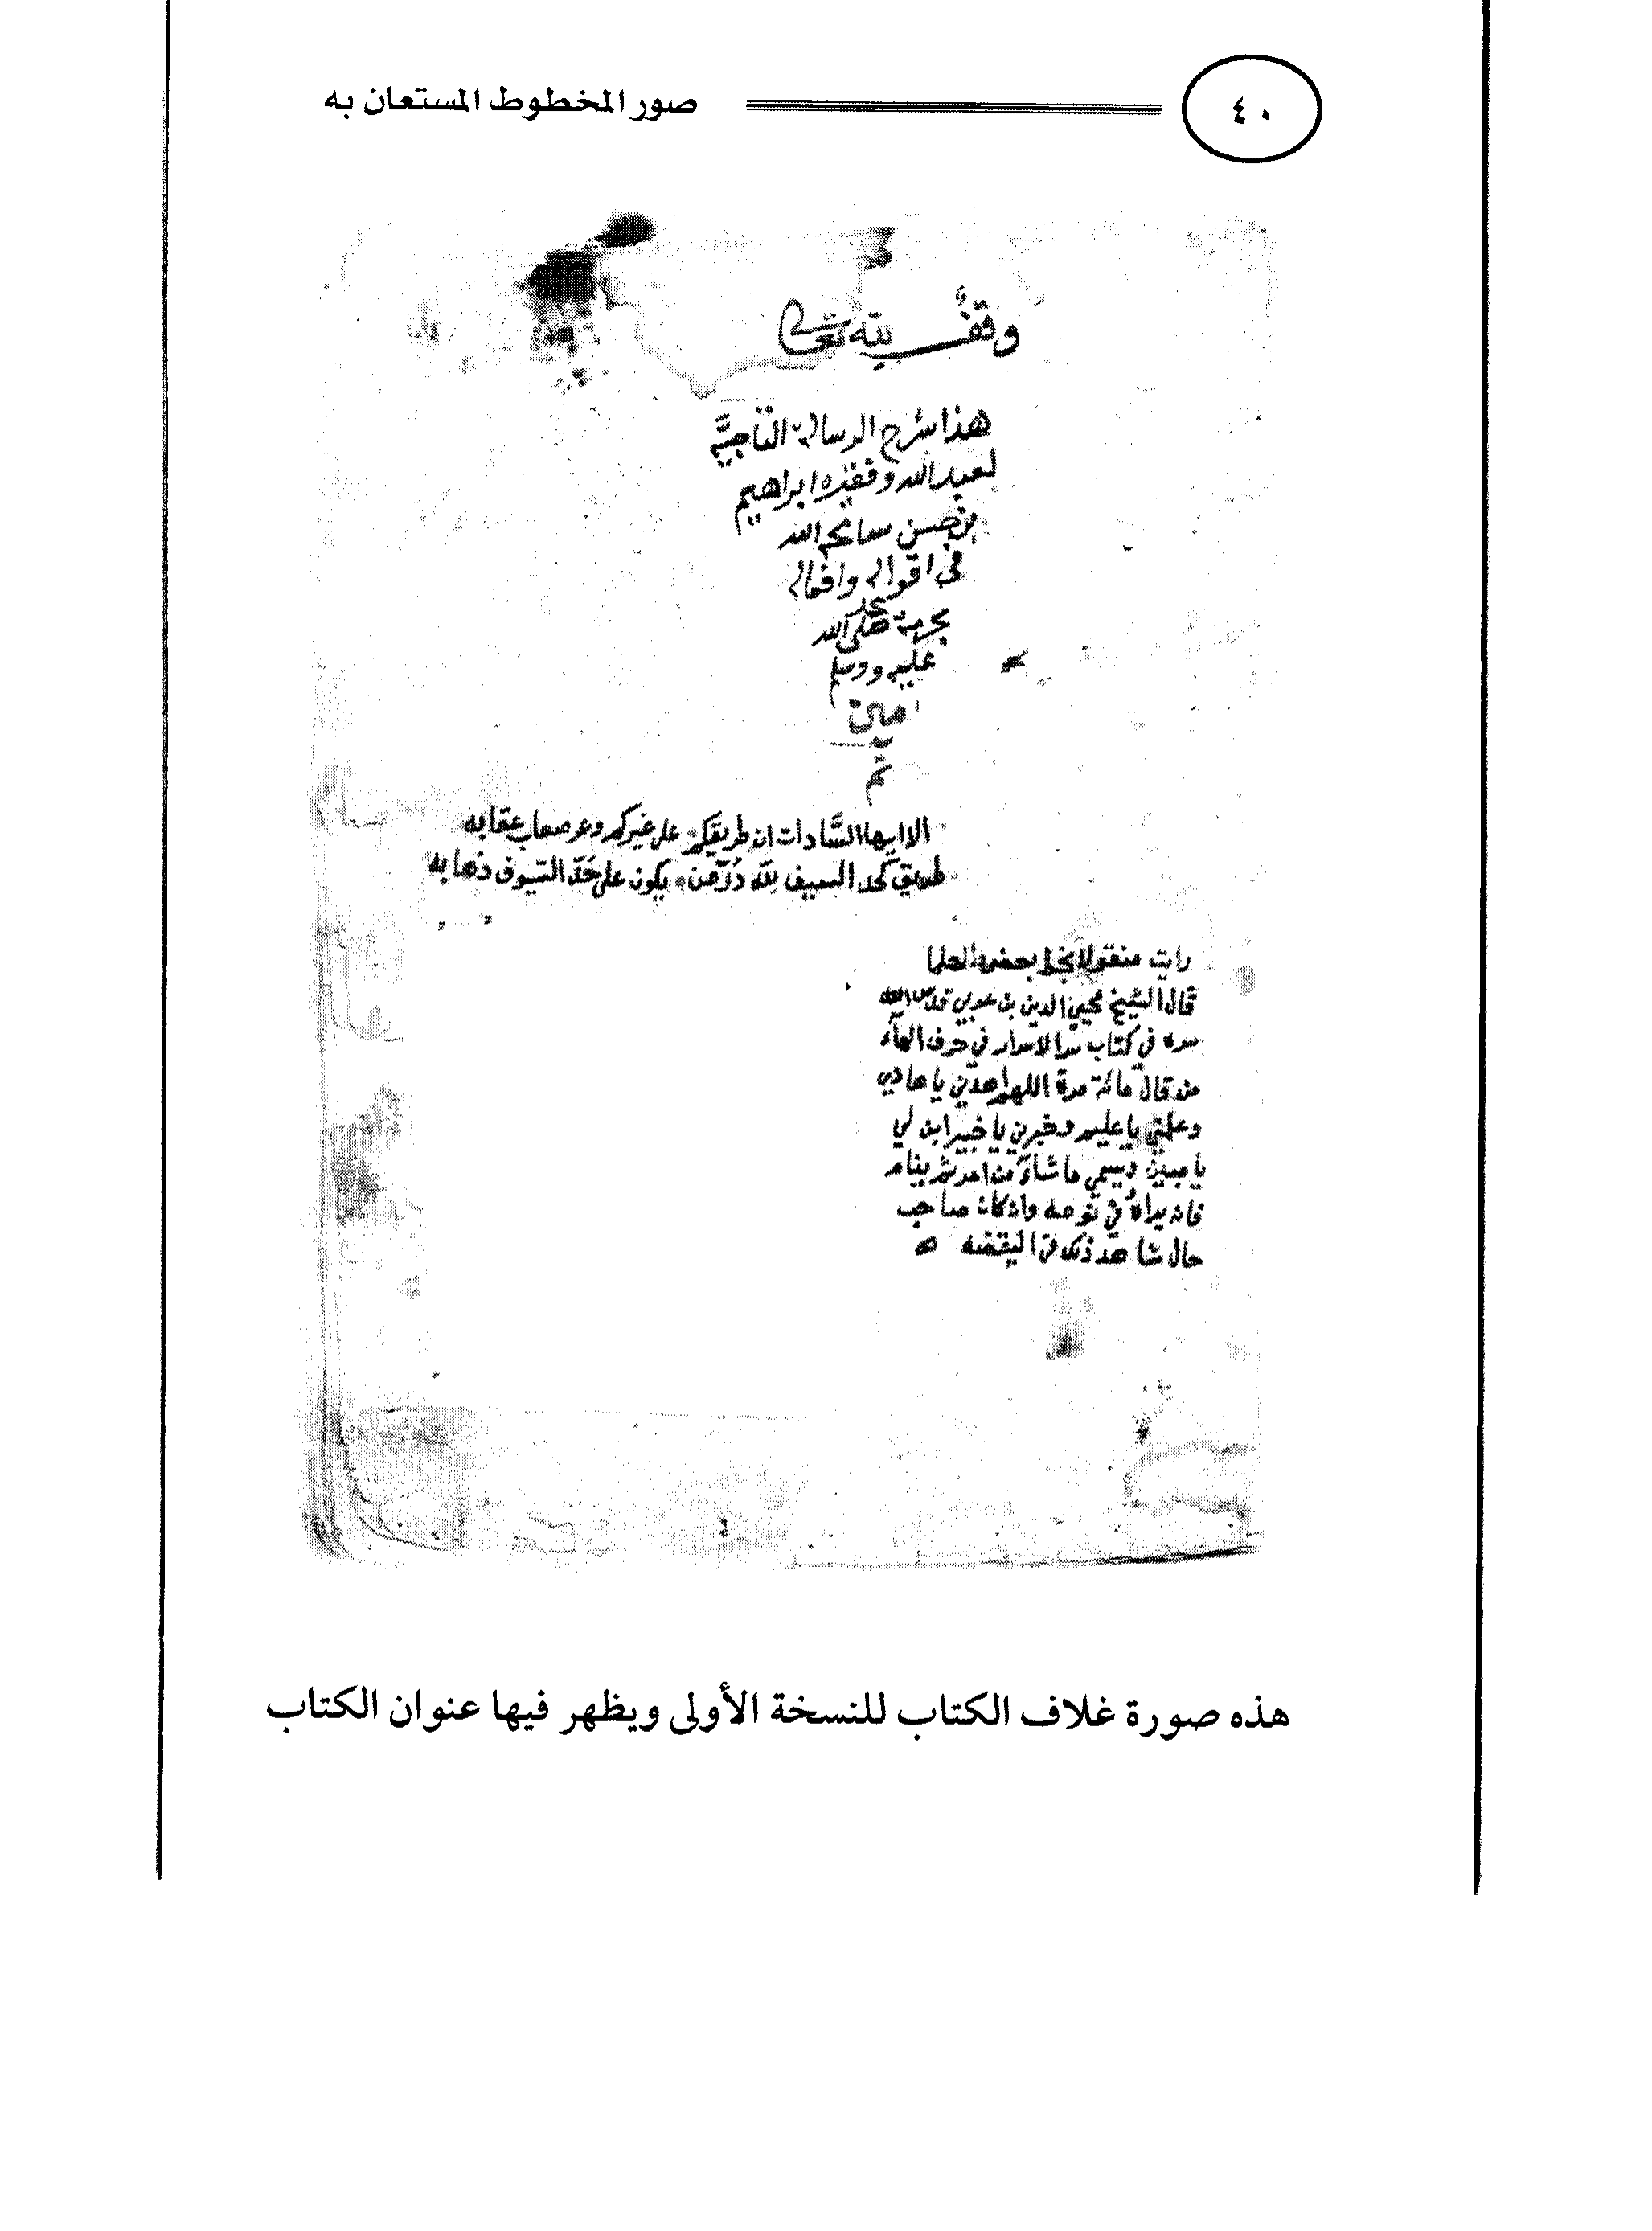 ٤٠ صور المخطوط المستعان به
وقف لله تعالى
هذا شرح الرسالة التاجية
لعبد الله وفقيره ابراهيم
بن حسن سامحه الله
في اقواله وافعاله
بحرمة محمد صلى الله
عليه ووسلم
امين
تم
الا ايها السادات ان طريقكم على غيركم وعر صعاب عقابه
طريق كحد السيف لله دركم يكون على حد السيوف ذهابه
رايت منقولا بخط بعض العلما
قال الشيخ محيي الدين بن عربي قدس الله
سره في كتاب سر الاسرار في حرف الهآء
من قال مائة مرة اللهم اهدني يا هادي
وعلمني يا عليم وخبرني يا خبير ابن لي
يا مبين ويسمي ما شآء من امر ثم ينام
فانه يراه في نومه وان كان صاحب
حال شاهد ذلك في اليقضه ه
هذه صورة غلاف الكتاب للنسخة الأولى ويظهر فيها عنوان الكتاب